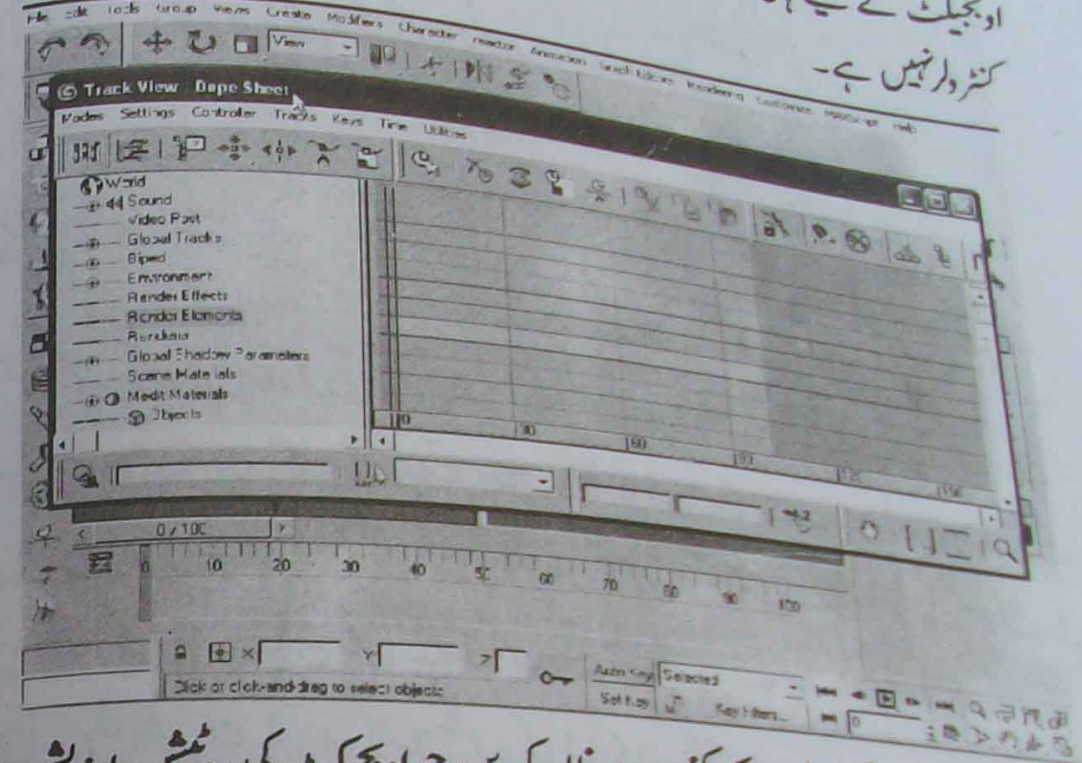 اوبجیکٹ کے لیے
کنٹرولر نہیں ہے۔
File Edit Tools Group Views Create Modifiers Character reactor Animation Graph Editors Rendering Customize MAXScript Help
View
Track View Dope Sheet
Modes Settings Controller Tracks Keys Time Utilities
World
Sound
Video Post
Global Tracks
Biped
Environment
Render Effects
Render Elements
Renderers
Global Shadow Parameters
Scene Materials
Medit Materials
Objects
0 30 60 90 120 150
0 / 100
0 10 20 30 40 50 60 70 80 90 100
X Y Z
Auto Key Selected
Click or click-and-drag to select objects
Set Key Key Filters... 0